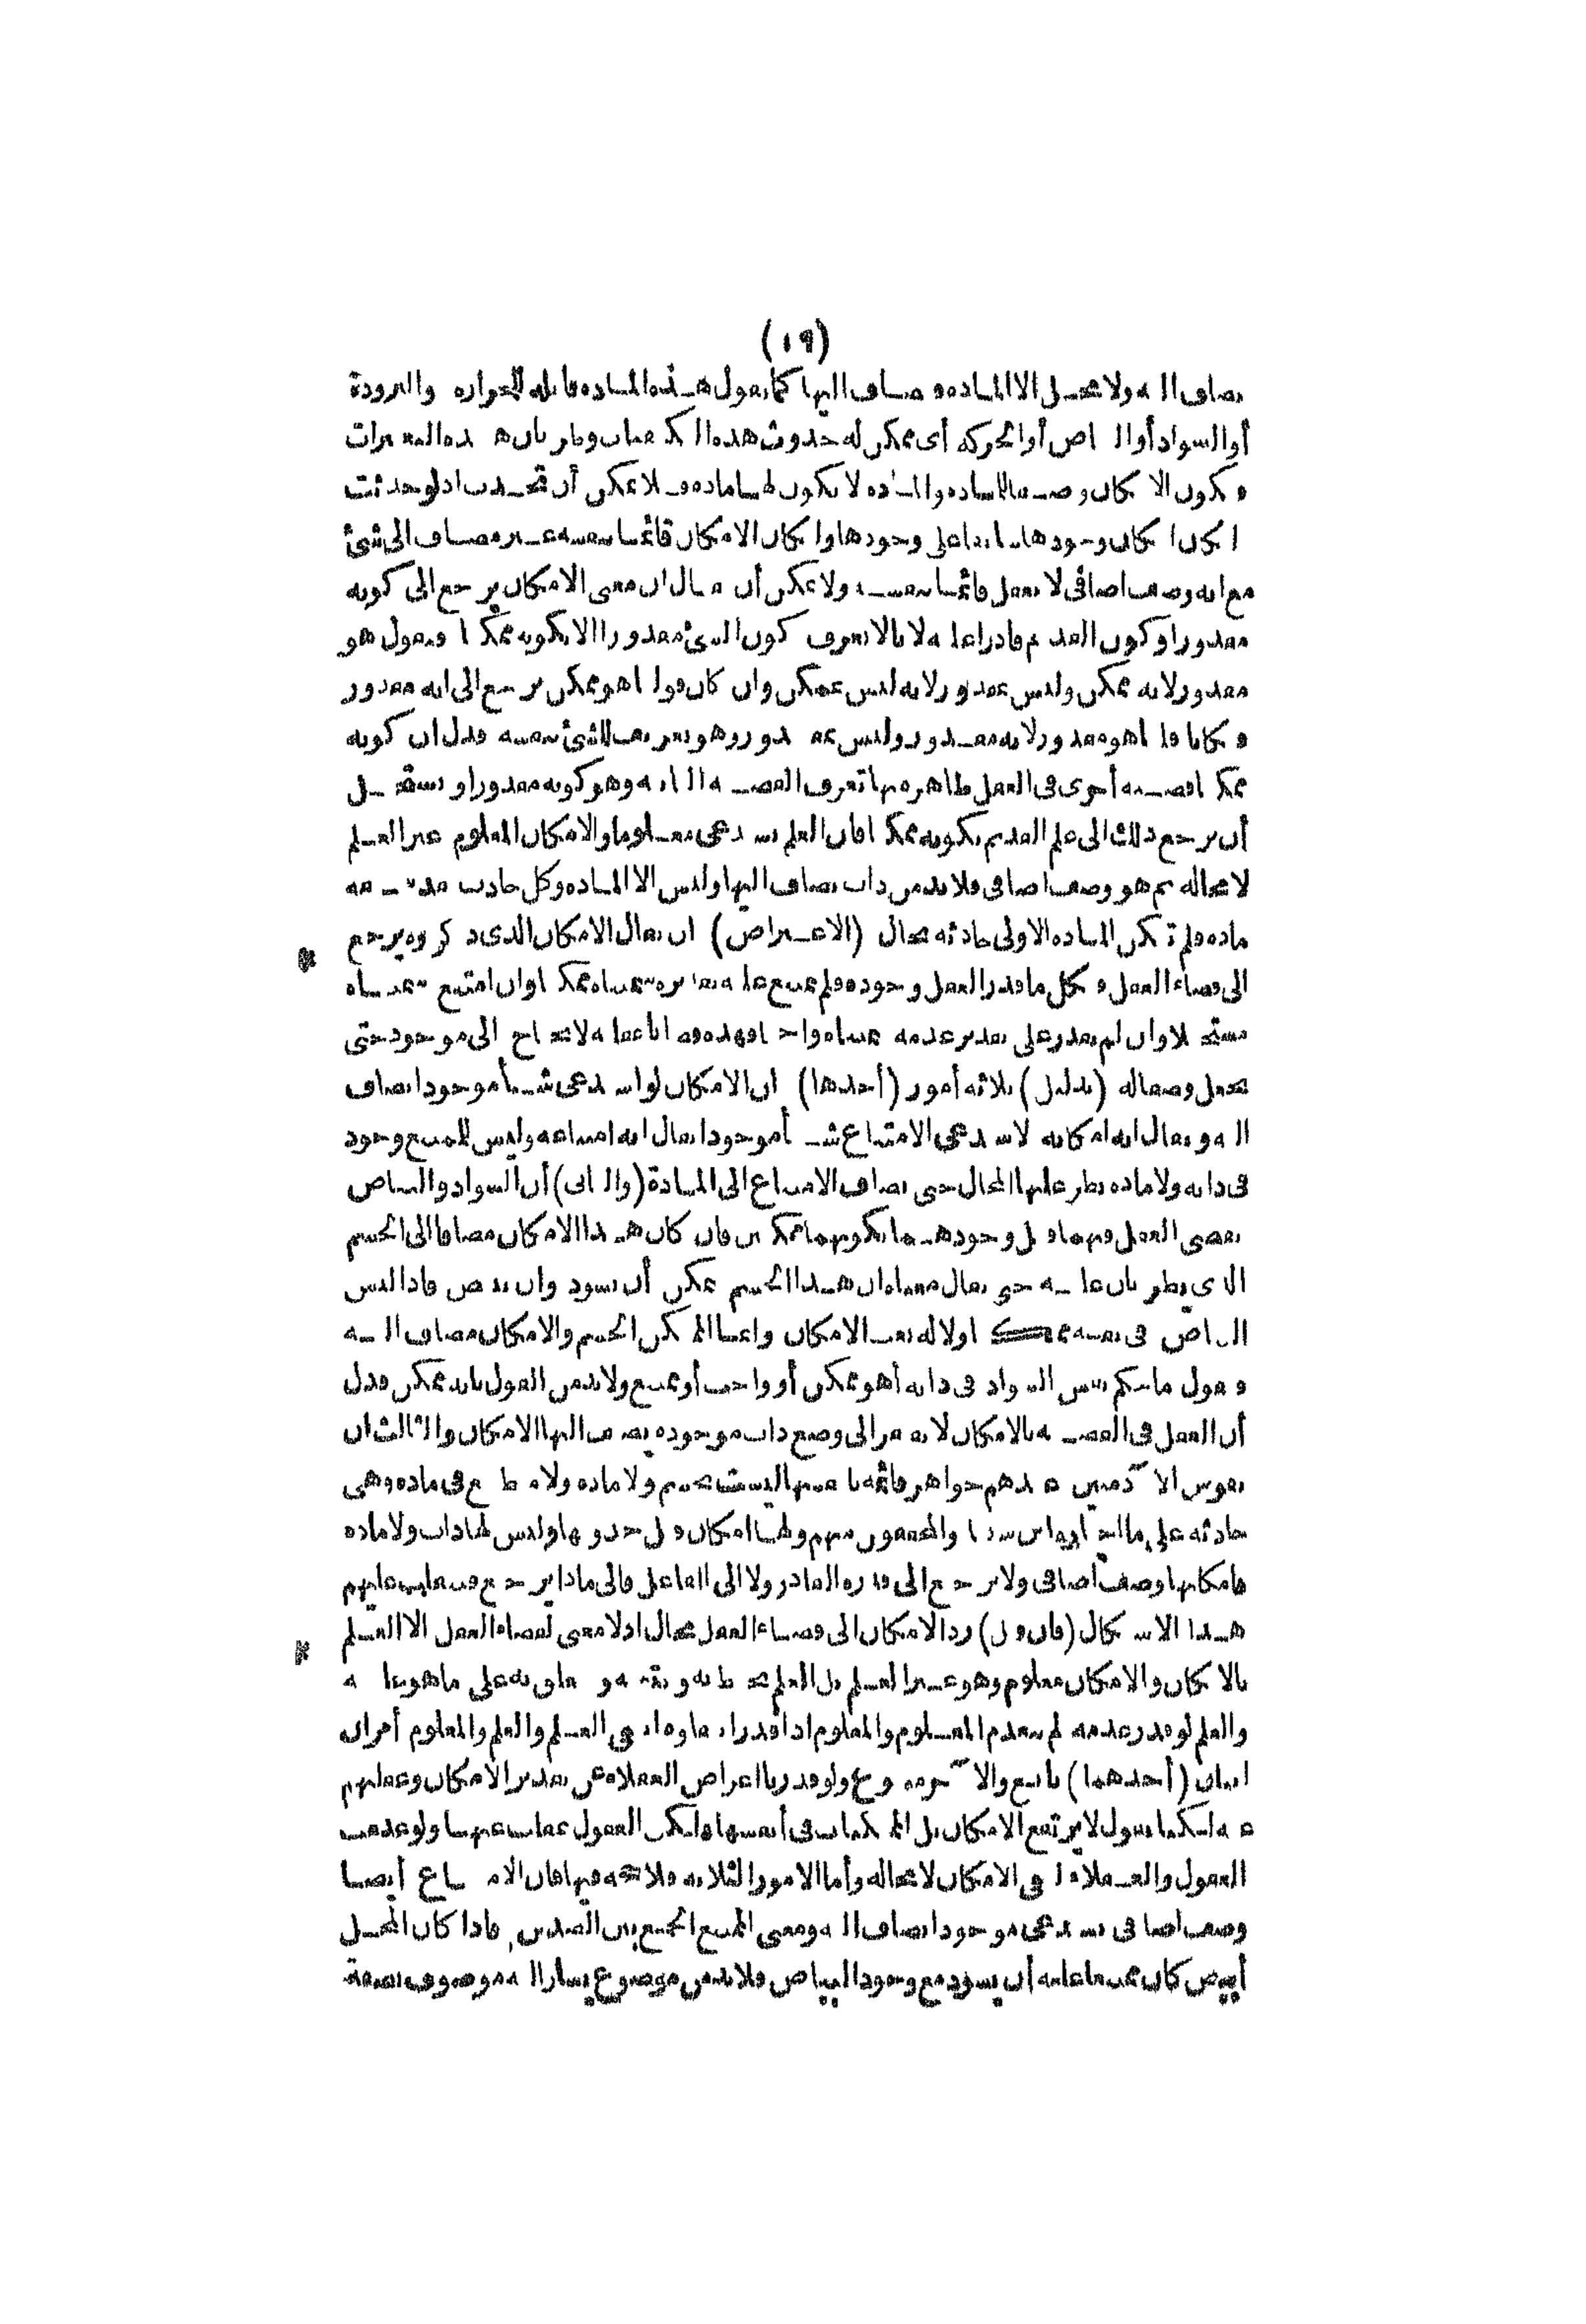 (١٩)
يضاف اليه ولا محل الا المادة فيضاف اليها كما نقول هذه المادة قابلة للحرارة والبرودة
أو السواد أو البياض أو الحركة أى ممكن له حدوث هذه الكيفيات وطريان هذه التغيرات
فيكون الامكان وصفا للمادة والمادة لا يكون لها مادة فلا يمكن أن تحدث اذ لو حدثت
لكان امكان وجودها سابقا على وجودها وكان الامكان قائما بنفسه غير مضاف الى شئ
مع انه وصف اضافى لا يعقل قائما بنفسه ولا يمكن أن يقال ان معنى الامكان يرجع الى كونه
مقدورا وكون القديم قادرا عليه لانا لا نعرف كون الشئ مقدورا الا بكونه ممكنا فنقول هو
مقدور لانه ممكن وليس بمقدور لانه ليس بممكن وان كان قولنا هو ممكن يرجع الى انه مقدور
فكانا قلنا هو مقدور لانه مقدور وليس بمقدور وهو تعريف الشئ بنفسه فدل ان كونه
ممكنا قضية أخرى فى العقل ظاهرة بها تعرف القضية الثانية وهو كونه مقدورا ويستحيل
أن يرجع ذلك الى علم القديم بكونه ممكنا فان العلم يستدعى معلوما والامكان المعلوم غير العلم
لا محالة ثم هو وصف اضافى فلا بد من ذات يضاف اليها وليس الا المادة وكل حادث فقد سبقه
مادة فلم تكن المادة الاولى حادثة بحال (الاعتراض) ان يقال الامكان الذى ذكروه يرجع
الى قضاء العقل فكل ما قدر العقل وجوده فلم يمتنع عليه تقديره سميناه ممكنا وان امتنع سميناه
مستحيلا وان لم يقدر على تقدير عدمه سميناه واجبا فهذه قضايا عقلية لا تحتاج الى موجود حتى
تجعل وصفا له (بدليل) ثلاثة أمور (أحدها) ان الامكان لو استدعى شيأ موجودا يضاف
اليه ويقال انه امكانه لاستدعى الامتناع شيأ موجودا يقال انه امتناعه وليس للممتنع وجود
فى ذاته ولا مادة يطرأ عليها المحال حتى يضاف الامتناع الى المادة (والثانى) أن السواد والبياض
يقضى العقل فيهما قبل وجودهما بكونهما ممكنين فان كان هذا الامكان مضافا الى الجسم
الذى يطريان عليه حتى يقال معناه ان هذا الجسم يمكن أن يسود وان يبيض فاذا ليس
البياض فى نفسه ممكنا ولا له نعت الامكان وانما الممكن الجسم والامكان مضاف اليه
فنقول ما حكم نفس السواد فى ذاته أهو ممكن أو واجب أو ممتنع ولا بد من القول بانه ممكن فدل
أن العقل فى القضية بالامكان لا يفتقر الى وضع ذات موجودة يضيف اليها الامكان والثالث ان
نفوس الآدميين عندهم جواهر قائمة بانفسها ليست بجسم ولا مادة ولا منطبع فى مادة وهى
حادثة على ما اختاره ابن سينا والمحققون منهم ولها امكان قبل حدوثها وليس لها ذات ولا مادة
فامكانها وصف اضافى ولا يرجع الى قدرة القادر ولا الى الفاعل فالى ماذا يرجع فينقلب عليهم
هذا الاشكال (فان قيل) رد الامكان الى قضاء العقل محال اذ لا معنى لقضاء العقل الا العلم
بالامكان والامكان معلوم وهو غير العلم بل العلم يحيط به ويتبعه ويتعلق به على ما هو عليه
والعلم لو قدر عدمه لم ينعدم المعلوم والمعلوم اذا قدر انتفاؤه انتفى العلم والعلم والمعلوم أمران
اثنان (أحدهما) تابع والآخر متبوع ولو قدرنا اعراض العقلاء عن تقدير الامكان وغفلتهم
عنه لكنا نقول لا يرتفع الامكان بل الممكنات فى أنفسها ولكن العقول غفلت عنها ولو عدمت
العقول والعقلاء لبقى الامكان لا محالة وأما الامور الثلاثة فلا حجة فيها فان الامتناع أيضا
وصف اضافى يستدعى موجودا يضاف اليه ومعنى الممتنع الجمع بين الضدين فاذا كان المحل
أبيض كان ممتنعا عليه أن يسود مع وجود البياض فلا بد من موضوع يشار اليه موصوف بصفة